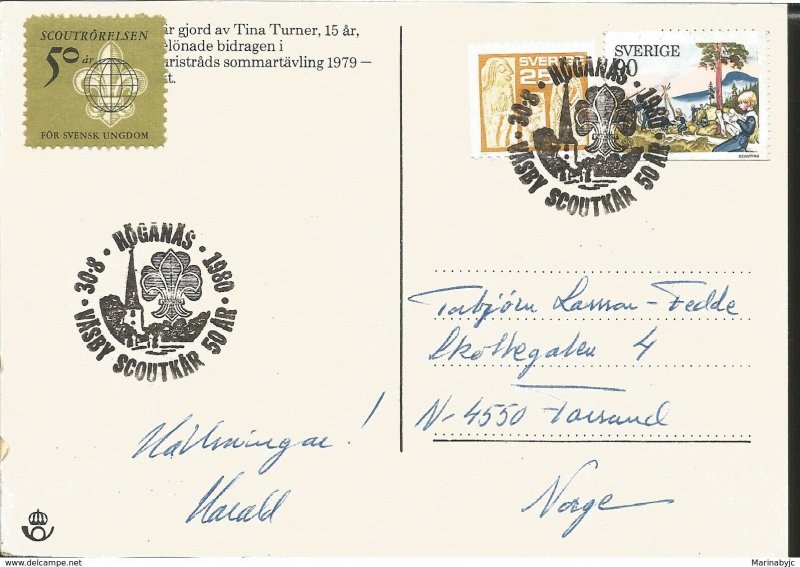 SCOUTRÖRELSEN
50 år
FÖR SVENSK UNGDOM
är gjord av Tina Turner, 15 år,
elönade bidragen i
uristråds sommartävling 1979 –
t.
SVERIGE
25
SVERIGE
90
SCOUTING
30-8 · HÖGANÄS · 1980 ·
VÄSBY SCOUTKÅR 50 ÅR ·
30-8 · HÖGANÄS · 1980 ·
VÄSBY SCOUTKÅR 50 ÅR ·
Torbjörn Larsson-Fedde
4
N-4550 Farsund
Norge
Hälsningar!
Harald
Marinabyjc